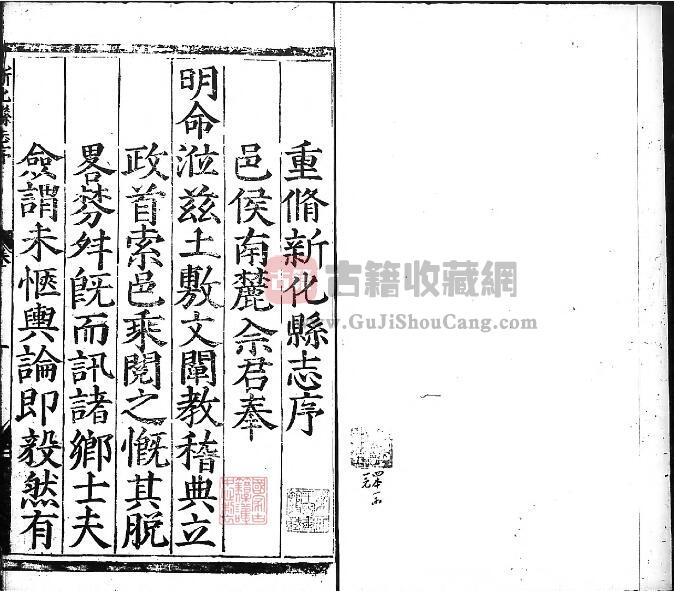 重脩新化縣志序
邑侯南麓余君奉
明命涖茲土敷文闡教稽典立
政首索邑乘閱之慨其脫
畧棼舛既而訊諸鄉士夫
僉謂未愜輿論即毅然有
新化縣志序
古籍收藏網
www.GuJiShouCang.com